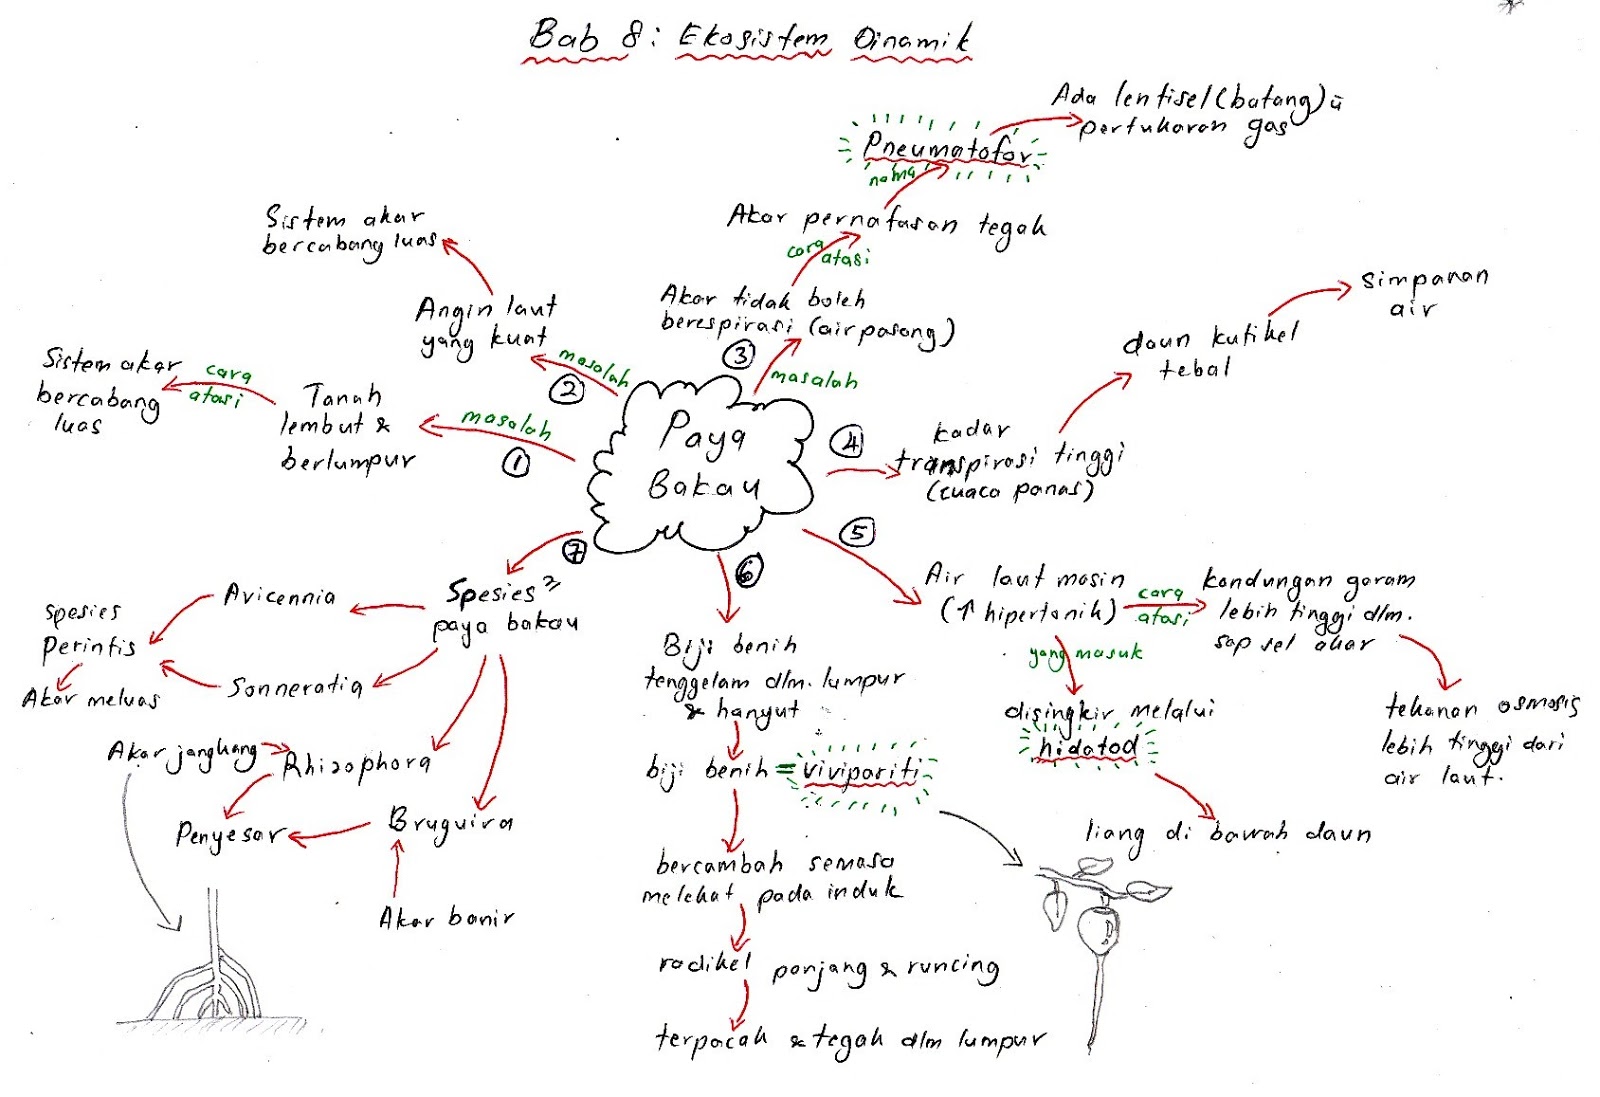 Bab 8: Ekosistem Dinamik
Paya
Bakau
1
masalah
Tanah
lembut &
berlumpur
cara
atasi
Sistem akar
bercabang
luas
2
masalah
Angin laut
yang kuat
Sistem akar
bercabang luas
3
masalah
Akar tidak boleh
berespirasi (air pasang)
cara
atasi
Akar pernafasan tegak
nama
Pneumatofor
Ada lentisel (batang) ū
pertukaran gas
4
kadar
transpirasi tinggi
(cuaca panas)
daun kutikel
tebal
simpanan
air
5
Air laut masin
(↑ hipertonik)
cara
atasi
kandungan garam
lebih tinggi dlm.
sap sel akar
tekanan osmosis
lebih tinggi dari
air laut.
yang masuk
disingkir melalui
hidatod
liang di bawah daun
6
Biji benih
tenggelam dlm. lumpur
& hanyut
biji benih = vivipariti
bercambah semasa
melekat pada induk
radikel panjang & runcing
terpacak & tegak dlm lumpur
7
Spesies²
paya bakau
Avicennia
Sonneratia
spesies
Perintis
Akar meluas
Rhizophora
Akar jangkang
Penyesar
Bruguira
Akar banir